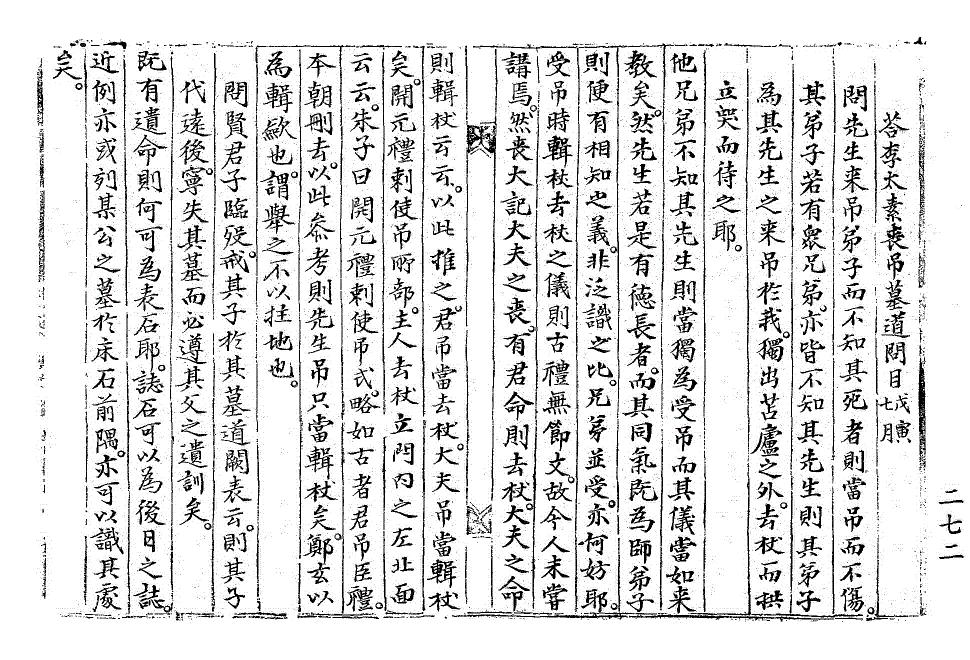 答李太素喪吊墓道問目戊寅七月
問先生来吊弟子而不知其死者則當吊而不傷。
其弟子若有衆兄弟。亦皆不知其先生則其弟子
為其先生之来吊於我。獨出苫廬之外。去杖而拱
立哭而待之耶。
他兄弟不知其先生則當獨為受吊而其儀當如来
教矣。然先生若是有德長者。而其同氣既為師弟子
則便有相知之義。非泛識之比。兄弟並受。亦何妨耶。
受吊時輯杖去杖之儀則古禮無節文。故今人未甞
講焉。然喪大記大夫之喪。有君命則去杖。大夫之命
則輯杖云云。以此推之。君吊當去杖。大夫吊當輯杖
矣。開元禮剌使吊所部。主人去杖立門內之左北面
云云。朱子曰開元禮剌使吊式。略如古者君吊臣禮。
本朝刪去。以此叅考則先生吊只當輯杖矣。鄭玄以
為輯歛也。謂舉之不以拄地也。
問賢君子臨歿。戒其子於其墓道闕表云。則其子
代遠後。寧失其墓而必遵其父之遺訓矣。
既有遺命則何可為表石耶。誌石可以為後日之誌。
近例亦或刻某公之墓於床石前隅。亦可以識其處
矣。
二七二